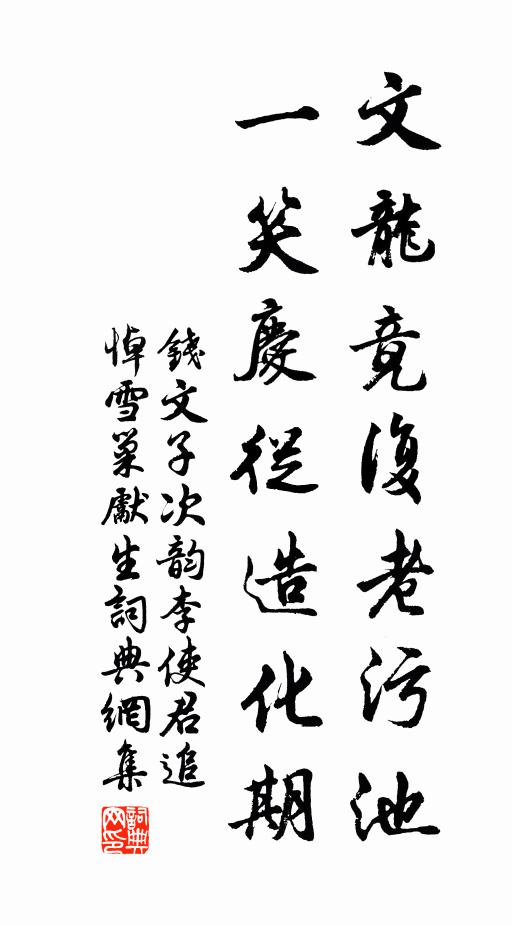 文龍竟復老污池
一笑慶從造化期
錢文子次韵李使君追
悼雪巢獻生詞典網集
詞典網印